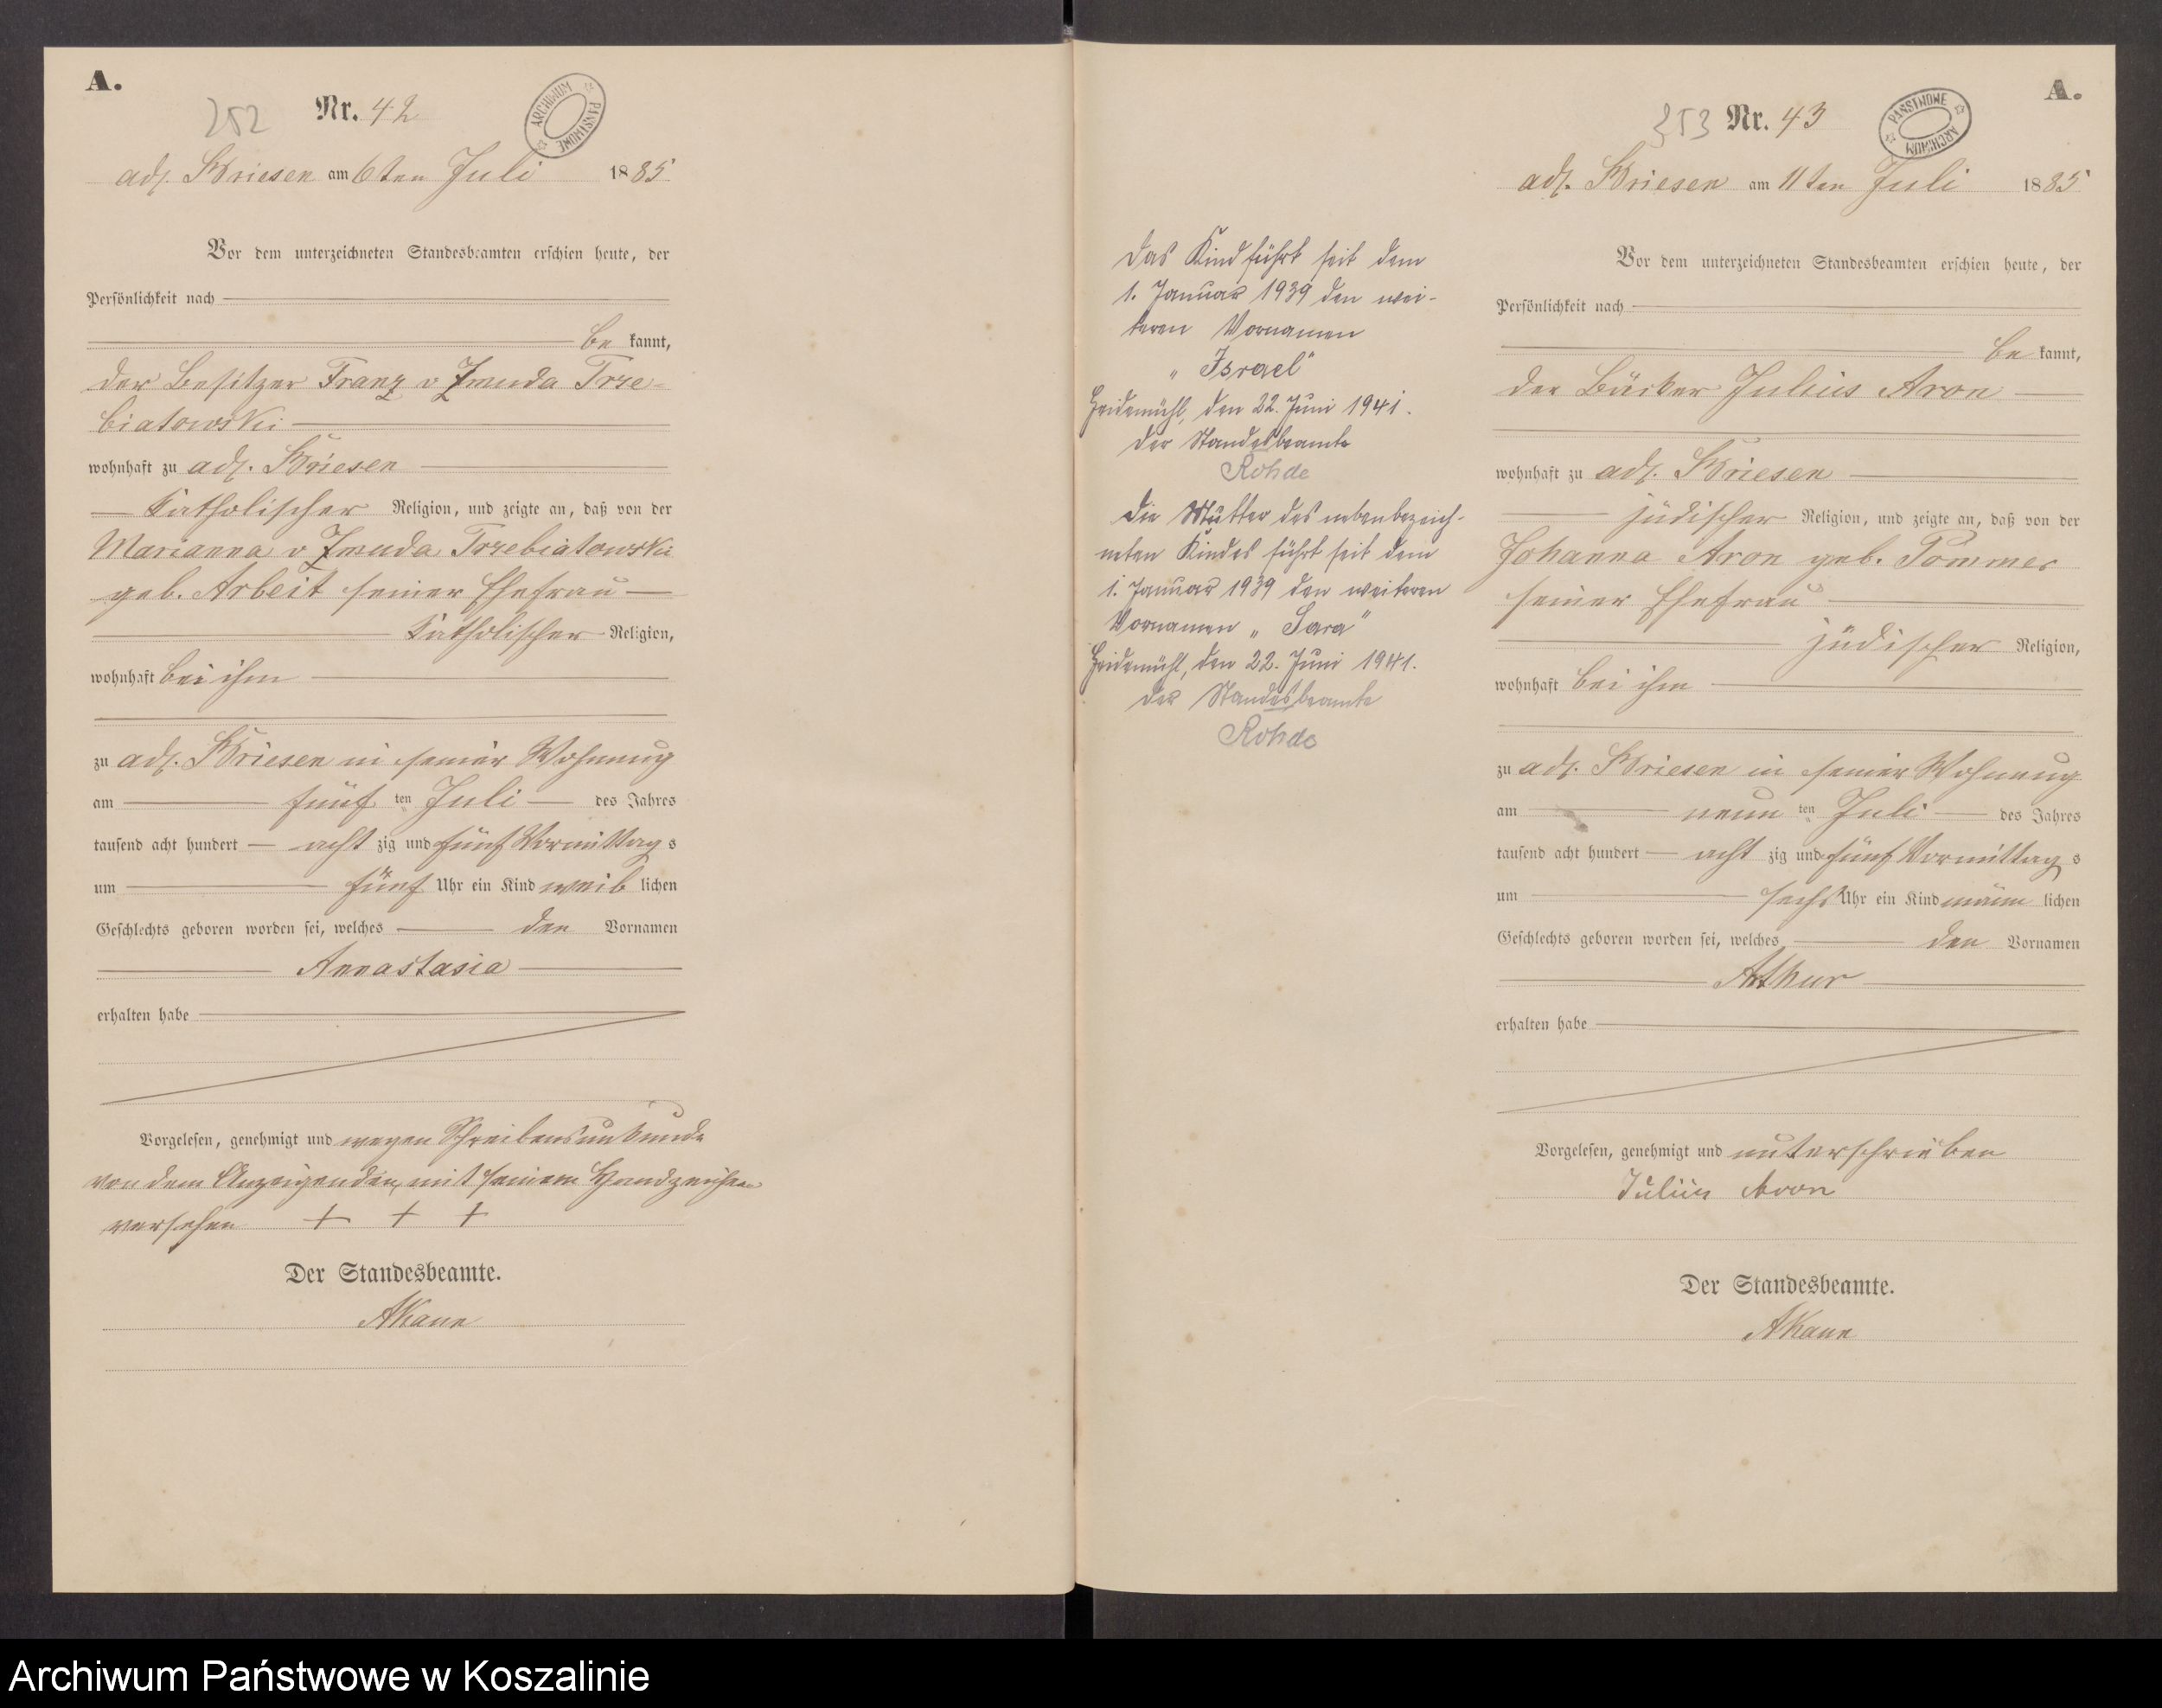 A.
252 Nr. 42
ARCHIWUM PAŃSTWOWE
adl. Briesen am 6ten Juli 1885
Vor dem unterzeichneten Standesbeamten erschien heute, der
Persönlichkeit nach
be kannt,
der Besitzer Franz v Zmuda Trze-
biatowski
wohnhaft zu adl. Briesen
katholischer Religion, und zeigte an, daß von der
Marianna v Zmuda Trzebiatowski
geb. Arbeit seiner Ehefrau
katholischer Religion,
wohnhaft bei ihm
zu adl. Briesen in seiner Wohnung
am fünf ten Juli des Jahres
tausend acht hundert acht zig und fünf Vormittag s
um fünf Uhr ein Kind weib lichen
Geschlechts geboren worden sei, welches den Vornamen
Annastasia
erhalten habe
Vorgelesen, genehmigt und wegen Schreibensunkunde
von dem Anzeigenden mit seinem Handzeichen
versehen + + +
Der Standesbeamte.
AKane
Das Kind führt seit dem
1. Januar 1939 den wei-
teren Vornamen
„Israel"
Heidemühl, den 22. Juni 1941.
Der Standesbeamte
Rohde
Die Mutter des nebenbezeich-
neten Kindes führt seit dem
1. Januar 1939 den weiteren
Vornamen „Sara"
Heidemühl, den 22. Juni 1941.
Der Standesbeamte
Rohde
A.
253 Nr. 43
PAŃSTWOWE ARCHIWUM
adl. Briesen am 11ten Juli 1885
Vor dem unterzeichneten Standesbeamten erschien heute, der
Persönlichkeit nach
be kannt,
der Bäcker Julius Aron
wohnhaft zu adl. Briesen
jüdischer Religion, und zeigte an, daß von der
Johanna Aron geb. Pommer
seiner Ehefrau
jüdischer Religion,
wohnhaft bei ihm
zu adl. Briesen in seiner Wohnung
am neun ten Juli des Jahres
tausend acht hundert acht zig und fünf Vormittag s
um sechs Uhr ein Kind männ lichen
Geschlechts geboren worden sei, welches den Vornamen
Arthur
erhalten habe
Vorgelesen, genehmigt und unterschrieben
Julius Aron
Der Standesbeamte.
AKane
Archiwum Państwowe w Koszalinie